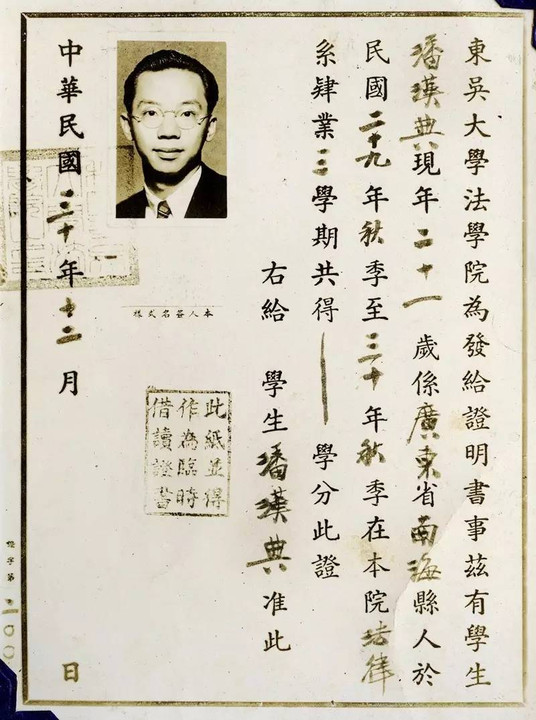 東吳大學法學院為發給證明書事茲有學生
潘漢典現年二十一歲係廣東省南海縣人於
民國二十九年秋季至三十年秋季在本院法律
系肄業三學期共得 學分此證
右給 學生潘漢典准此
此紙並得
作為臨時
借讀證書
本人簽名式樣
中華民國三十年十二月 日
證字第